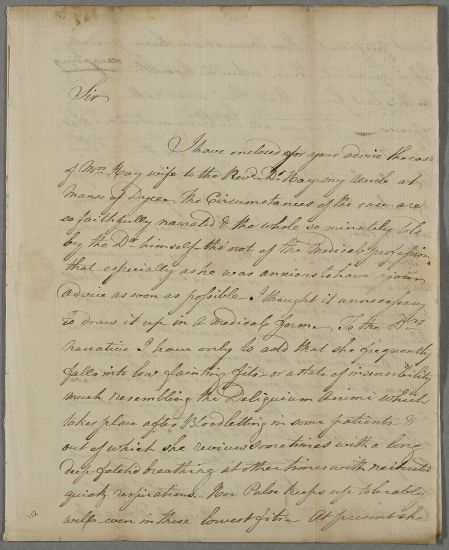 Sir
I have inclosed for your advice the case
of Mrs. Hay wife to the Revd. Dr. Hay my Uncle at
Manse of Dyce. The Circumstances of the case are
so faithfully narrated & the whole so minutely told
by the Dr. himself tho' not of the Medical profession
that especially as he was anxious to have your
advice as soon as possible I thought it unnecessary
to draw it up in a Medical form. To the Drs
narative I have only to add that she frequently
falls into low fainting fits or a state of insensibility
much resembling the Deliquium Animi which
takes place after Bloodletting in some patients &
out of which she revives sometimes with a long
deep fetched breathing at other times with reiterated
quick respirations. Her Pulse keeps up tolerably
well even in these lowest fits. At present she
112